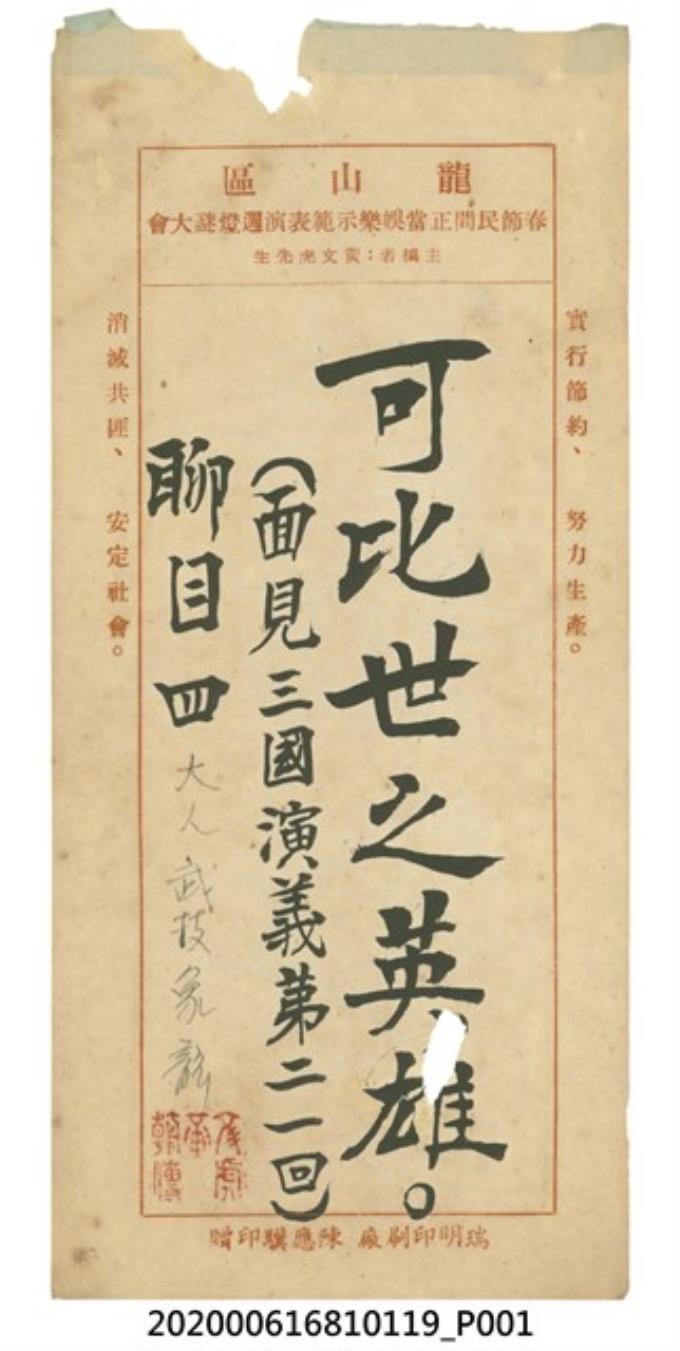 龍山區
春節民間正當娛樂示範表演選燈謎大會
主稿者：黃文虎先生
實行節約、努力生產。
可比世之英雄。
（面見三國演義第二一回）
聊目四
大人 武技 象 龍
消滅共匪、安定社會。
瑞明印刷廠 陳應騏印贈
202000616810119_P001